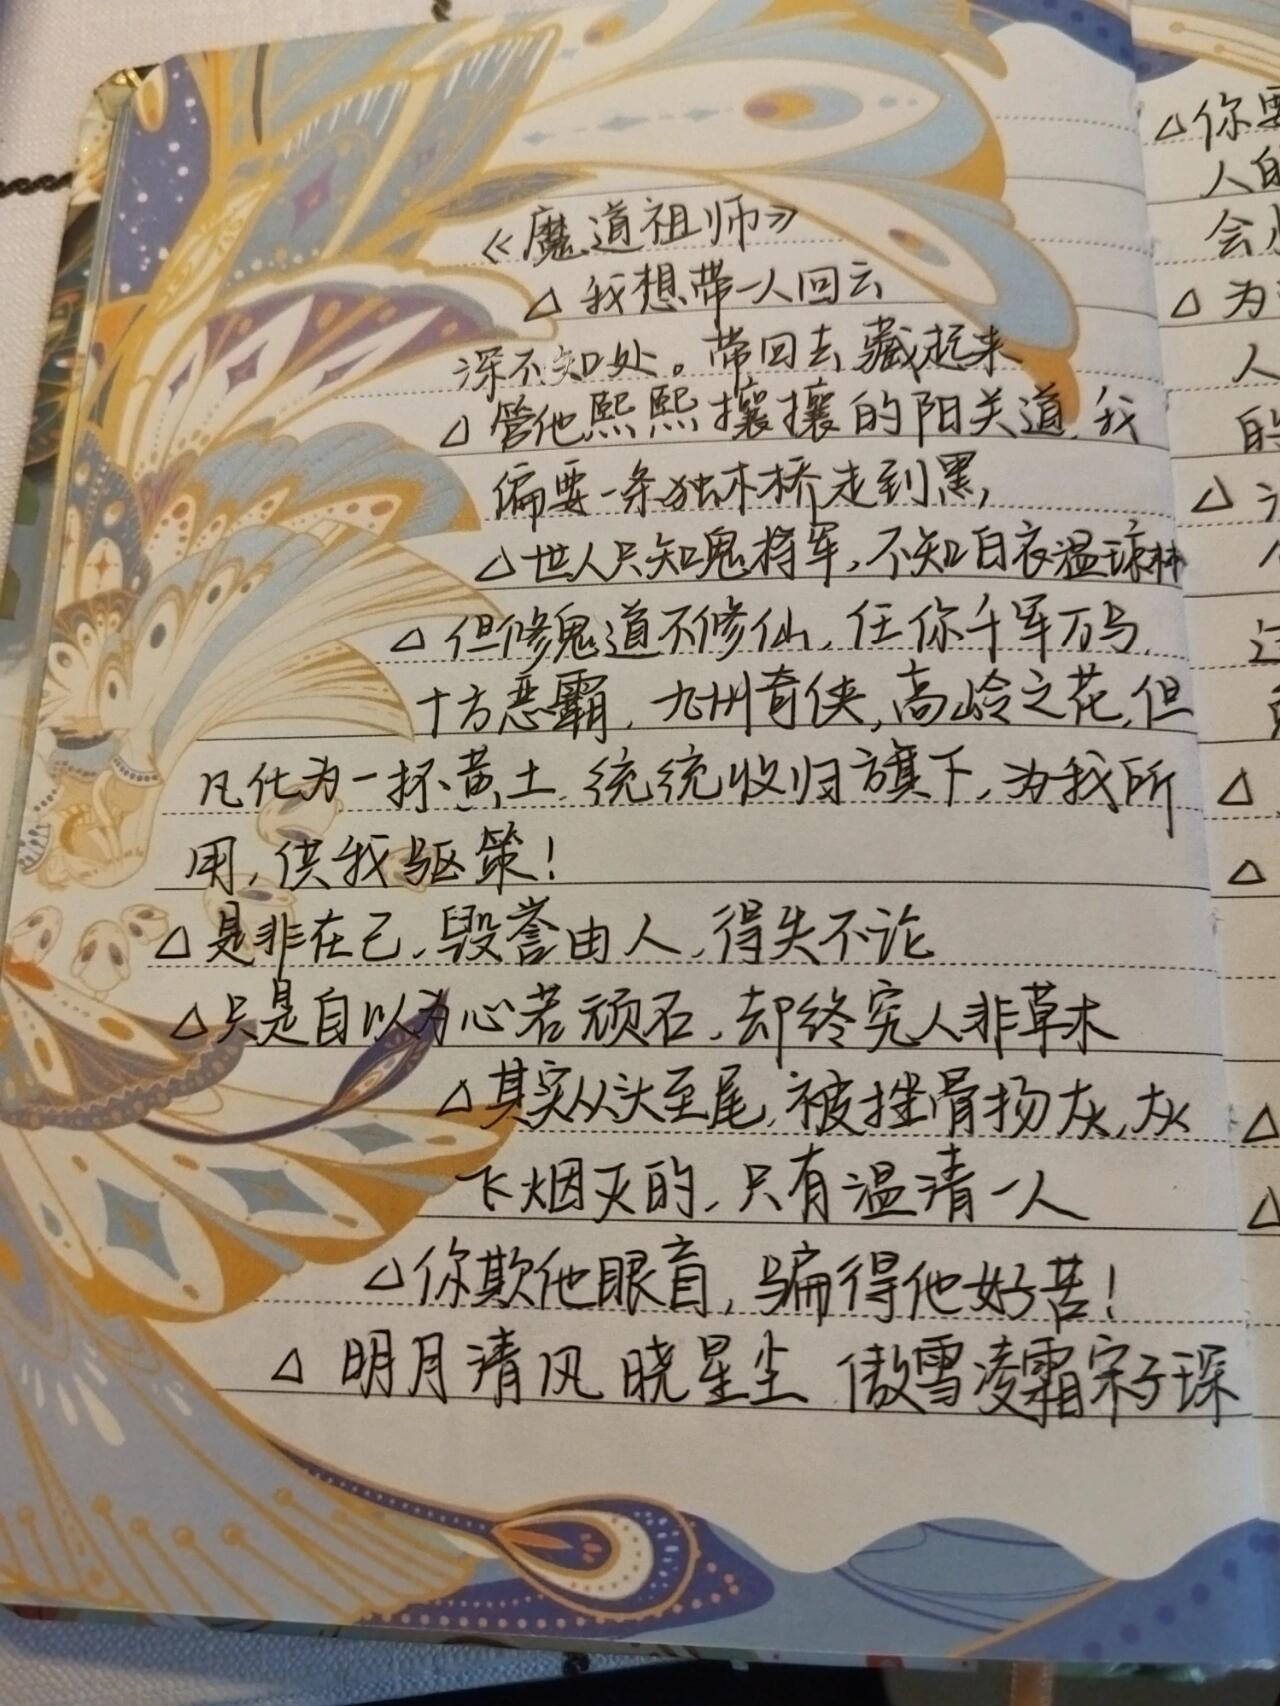 《魔道祖师》
△ 我想带一人回云
深不知处。带回去藏起来
△ 管他熙熙攘攘的阳关道,我
偏要一条独木桥走到黑,
△世人只知鬼将军,不知白衣温琼林
△ 但修鬼道不修仙,任你千军万马,
十方恶霸,九州奇侠,高岭之花,但
凡化为一抔黄土,统统收归旗下,为我所
用,供我驱策!
△ 是非在己,毁誉由人,得失不论
△只是自以为心若顽石,却终究人非草木
△其实从头至尾,被挫骨扬灰,灰
飞烟灭的,只有温情一人
△你欺他眼盲,骗得他好苦!
△ 明月清风晓星尘 傲雪凌霜宋子琛
△你要
人的
会
△ 为
人
的
△
△
△
△
△